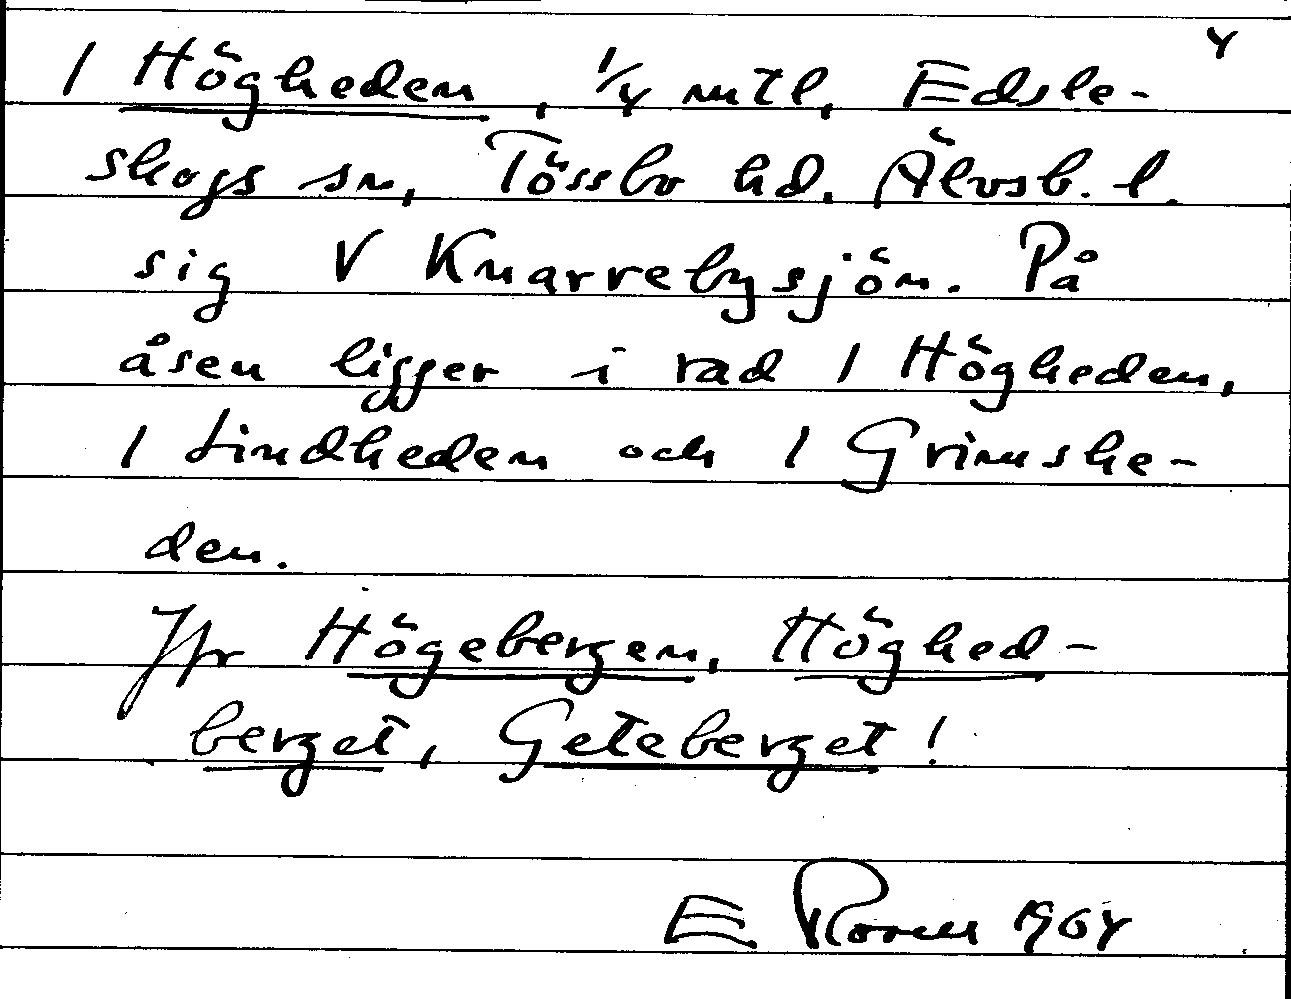 4
1 Högheden, 1/4 mtl, Edsle-
skogs sn, Tössbo hd. Älvsb. l.
sig V Knarrebysjön. På
åsen ligger i rad 1 Högheden,
1 Lindheden och 1 Grimshe-
den.
Jfr Högebergen, Höghed-
berget, Geteberget!
E 1964